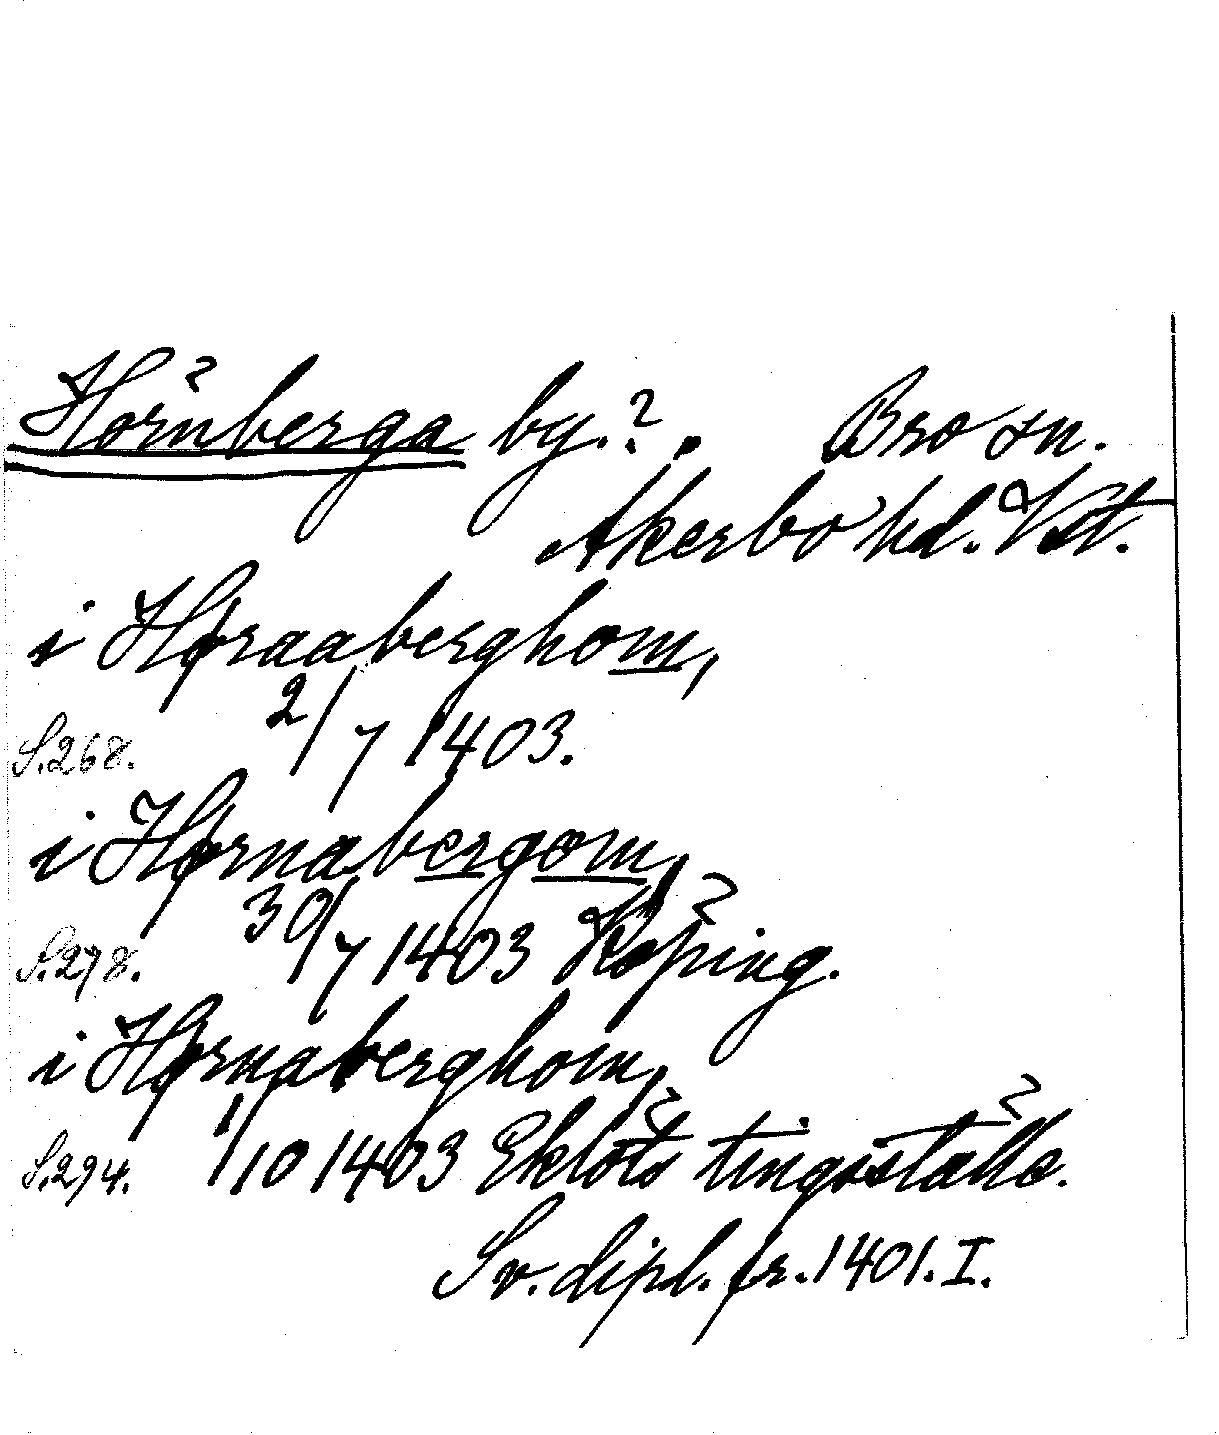 Hörnberga by.?. Bro sn.
Åkerbo hd. Vst.
i Høraaberghom,
S.268. 2/7 1403.
i Hørnabergom,
S.278. 30/7 1403 Köping.
i Hørnaberghom,
S.294. 1/10 1403 Eklöts tingsställe.
Sv. dipl. fr. 1401. I.